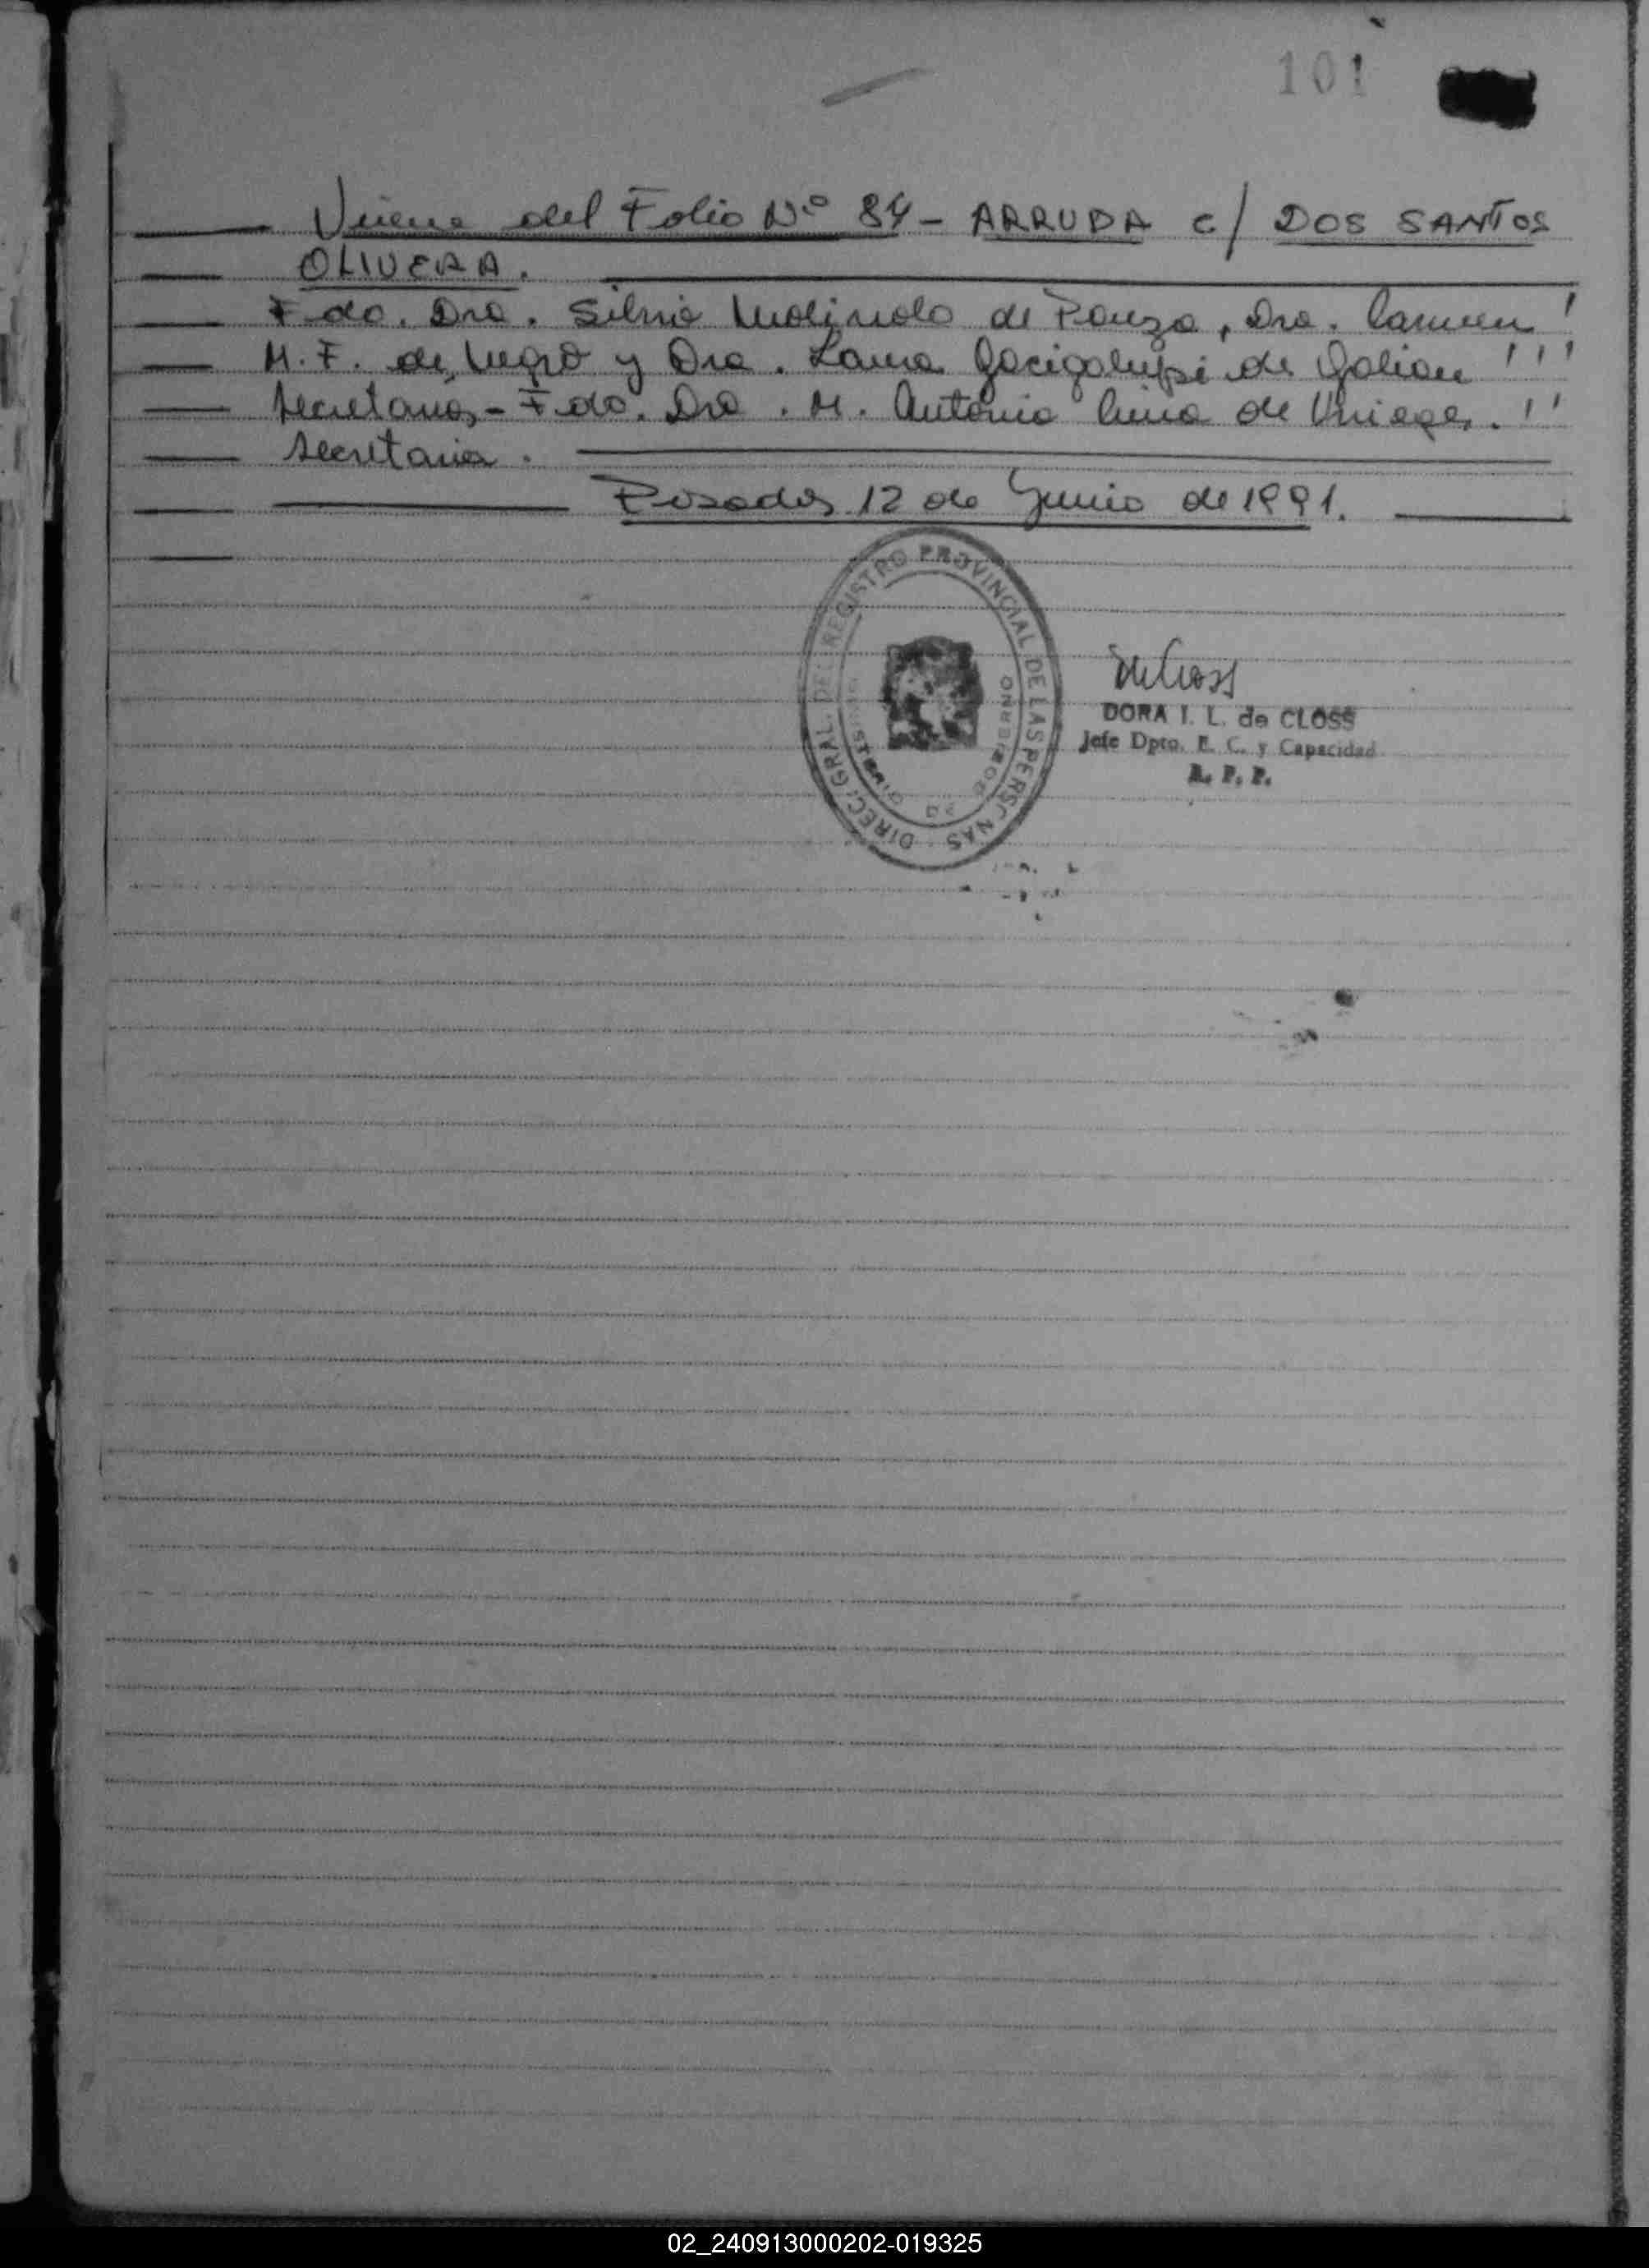 101
Viene del Folio Nº 84 - ARRUDA c/ DOS SANTOS
OLIVERA.
Fdo. Dra. Silvia de Panza, Dra. Carmen
M. F. de Negro y Dra. Laura de Galian
Secretarias - Fdo. Dra. M. Antonia de
Secretaria.
Posadas 12 de Junio de 1991.
DIREC. GRAL. DEL REGISTRO PROVINCIAL DE LAS PERSONAS
MINISTERIO DE GOBIERNO
DORA I. L. de CLOSS
Jefe Dpto. E. C. y Capacidad
R. P. P.
02_240913000202-019325